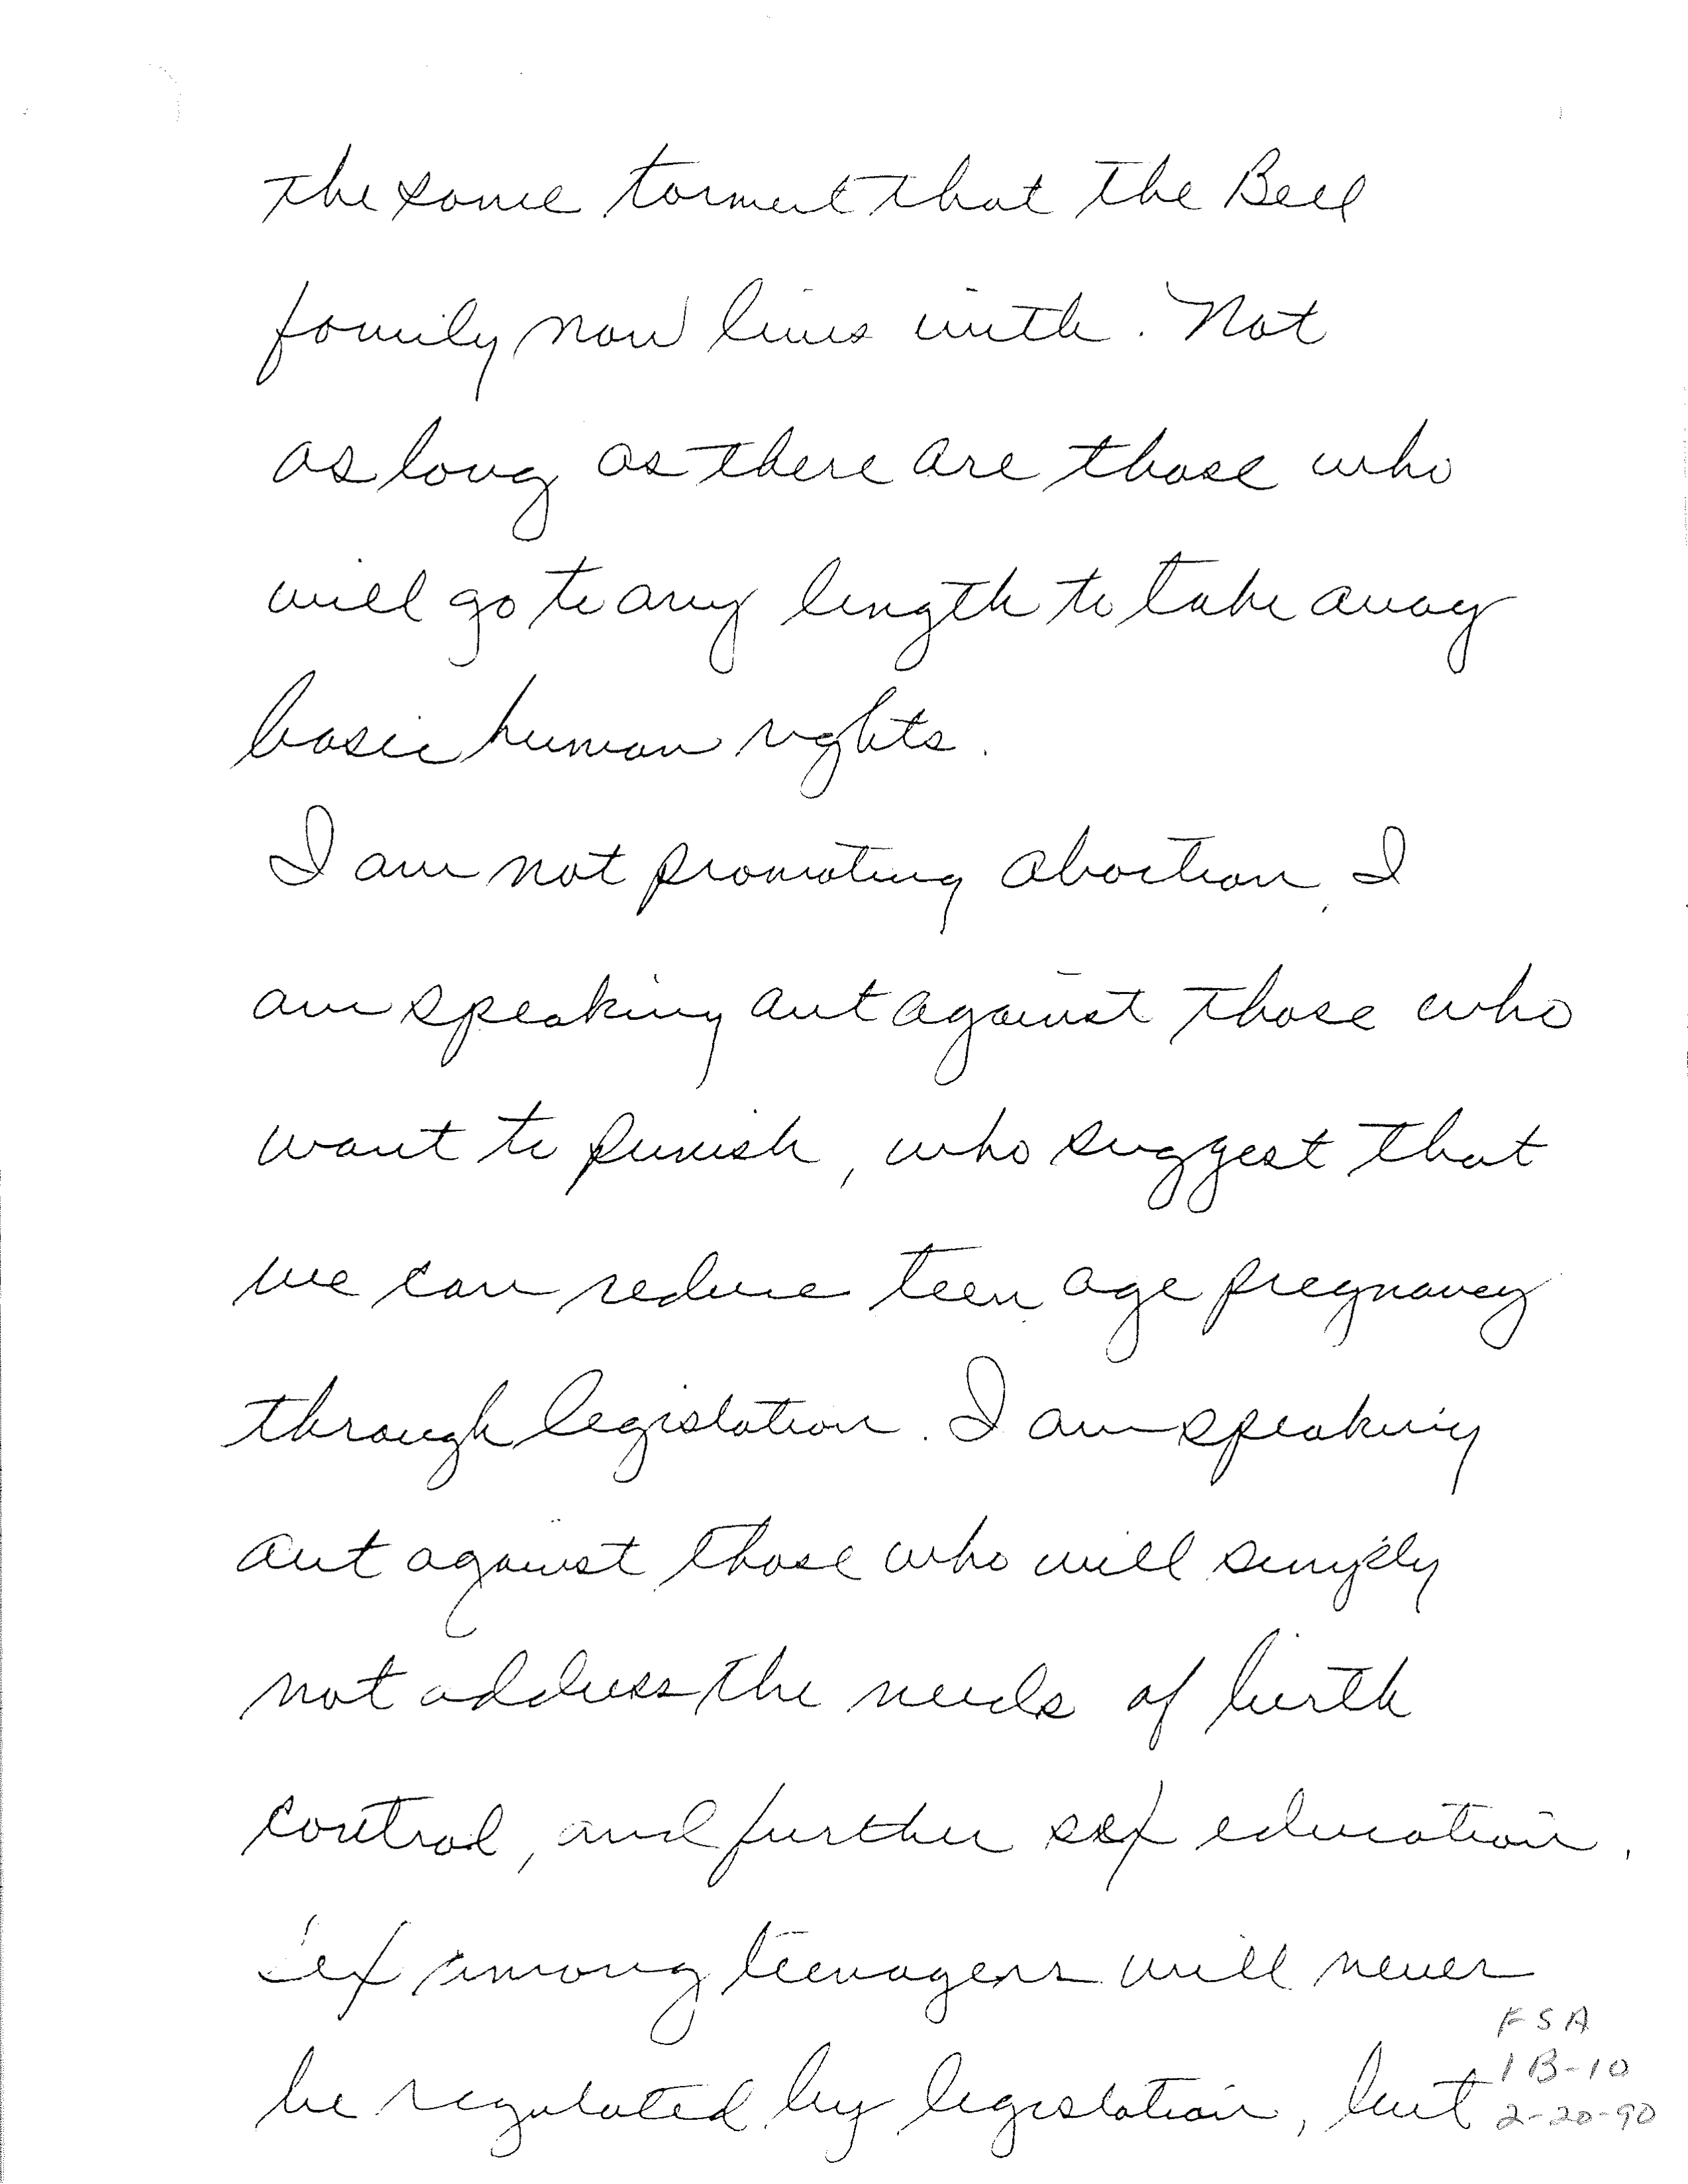 the same torment that the Bell
family now lives with. Not
as long as there are those who
will go to any length to take away
basic human rights.
I am not promoting abortion, I
am speaking out against those who
want to punish, who suggest that
we can reduce teen age pregnancy
through legislation. I am speaking
out against those who will simply
not address the needs of birth
control, and further sex education.
Sex among teenagers will never
be regulated by legislation, but
FSA
1B-10
2-20-90